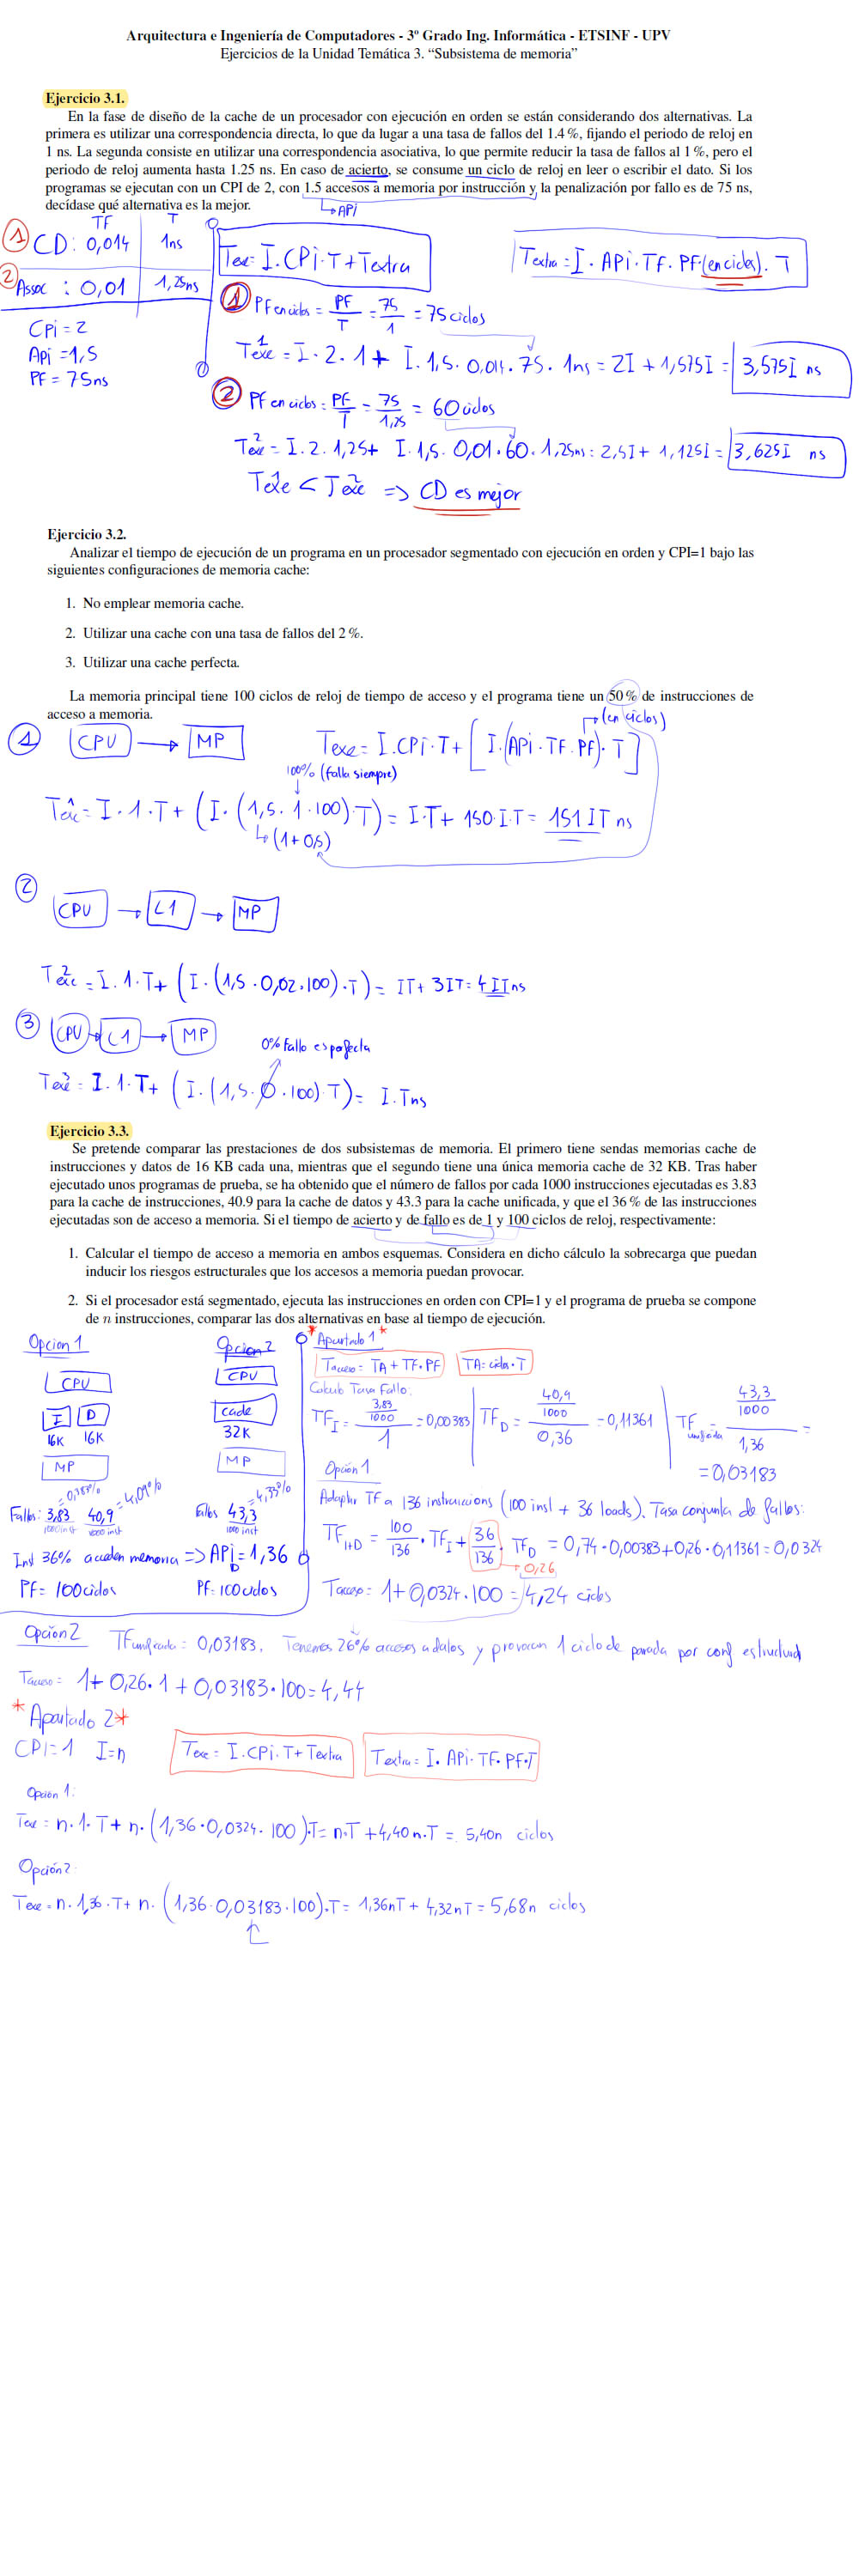 Arquitectura e Ingeniería de Computadores - 3º Grado Ing. Informática - ETSINF - UPV
Ejercicios de la Unidad Temática 3. “Subsistema de memoria”
Ejercicio 3.1.
En la fase de diseño de la cache de un procesador con ejecución en orden se están considerando dos alternativas. La
primera es utilizar una correspondencia directa, lo que da lugar a una tasa de fallos del 1.4 %, fijando el periodo de reloj en
1 ns. La segunda consiste en utilizar una correspondencia asociativa, lo que permite reducir la tasa de fallos al 1 %, pero el
periodo de reloj aumenta hasta 1.25 ns. En caso de acierto, se consume un ciclo de reloj en leer o escribir el dato. Si los
programas se ejecutan con un CPI de 2, con 1.5 accesos a memoria por instrucción y la penalización por fallo es de 75 ns,
decídase qué alternativa es la mejor.
↳ APi
TF T
1 CD: 0,014 1ns
2 Assoc : 0,01 1,25ns
CPi = 2
Api = 1,5
PF = 75ns
Texe = I.CPi.T + Textra
Textra = I. APi. TF. PF.(en ciclos). T
1 PF en ciclos = PF/T = 75/1 = 75 ciclos
Texe 1 = I. 2. 1 + I. 1,5. 0,014. 75. 1ns = 2I + 1,575I = 3,575I ns
2 PF en ciclos = PF/T = 75/1,25 = 60 ciclos
Texe 2 = I. 2. 1,25 + I. 1,5. 0,01. 60. 1,25ns = 2,5I + 1,125I = 3,625I ns
Texe 1 < Texe 2 => CD es mejor
Ejercicio 3.2.
Analizar el tiempo de ejecución de un programa en un procesador segmentado con ejecución en orden y CPI=1 bajo las
siguientes configuraciones de memoria cache:
1. No emplear memoria cache.
2. Utilizar una cache con una tasa de fallos del 2 %.
3. Utilizar una cache perfecta.
La memoria principal tiene 100 ciclos de reloj de tiempo de acceso y el programa tiene un 50 % de instrucciones de
acceso a memoria.
(en ciclos)
1 CPU → MP
Texe = I.CPi.T + [I.(APi.TF.PF).T]
100% (falla siempre)
Texe 1 = I. 1. T + (I. (1,5. 1. 100).T) = I.T + 150.I.T = 151 IT ns
↳ (1+0,5)
2
CPU → L1 → MP
Texe 2 = I. 1. T + (I. (1,5. 0,02. 100).T) = IT + 3IT = 4IT ns
3 CPU → L1 → MP
0% fallo es perfecta
Texe 3 = I. 1. T + (I. (1,5. 0. 100). T) = I.T ns
Ejercicio 3.3.
Se pretende comparar las prestaciones de dos subsistemas de memoria. El primero tiene sendas memorias cache de
instrucciones y datos de 16 KB cada una, mientras que el segundo tiene una única memoria cache de 32 KB. Tras haber
ejecutado unos programas de prueba, se ha obtenido que el número de fallos por cada 1000 instrucciones ejecutadas es 3.83
para la cache de instrucciones, 40.9 para la cache de datos y 43.3 para la cache unificada, y que el 36 % de las instrucciones
ejecutadas son de acceso a memoria. Si el tiempo de acierto y de fallo es de 1 y 100 ciclos de reloj, respectivamente:
1. Calcular el tiempo de acceso a memoria en ambos esquemas. Considera en dicho cálculo la sobrecarga que puedan
inducir los riesgos estructurales que los accesos a memoria puedan provocar.
2. Si el procesador está segmentado, ejecuta las instrucciones en orden con CPI=1 y el programa de prueba se compone
de n instrucciones, comparar las dos alternativas en base al tiempo de ejecución.
Opcion 1
CPU
I D
16K 16K
MP
= 0,383% = 4,09%
Fallos: 3,83/1000inst 40,9/1000 inst
Opcion 2
CPU
cache
32K
MP
= 4,33%
fallos 43,3/1000 inst
Inst 36% acceden memoria => APi = 1,36
D
PF = 100 ciclos PF = 100 ciclos
*Apartado 1*
Tacceso = TA + TF.PF TA = ciclos.T
Calculo Tasa Fallo:
TF I = (3,83/1000)/1 = 0,00383
TF D = (40,9/1000)/0,36 = 0,11361
TF unificada = (43,3/1000)/1,36 = = 0,03183
Opción 1
Adaptar TF a 136 instruccions (100 inst + 36 loads). Tasa conjunta de fallos:
TF I+D = 100/136 . TF I + 36/136 . TF D = 0,74.0,00383 + 0,26.0,11361 = 0,0324
→ 0,26
Tacceso = 1 + 0,0324. 100 = 4,24 ciclos
Opción 2 TF unificada = 0,03183. Tenemos 26% accesos a datos y provocan 1 ciclo de parada por conf estructural
Tacceso = 1 + 0,26. 1 + 0,03183. 100 = 4,44
*Apartado 2*
CPI = 1 I = n
Texe = I.CPi.T + Textra
Textra = I. APi. TF. PF.T
Opción 1:
Texe = n. 1. T + n. (1,36.0,0324. 100).T = n.T + 4,40 n.T = 5,40n ciclos
Opción 2:
Texe = n. 1,36. T + n. (1,36. 0,03183. 100).T = 1,36nT + 4,32nT = 5,68n ciclos